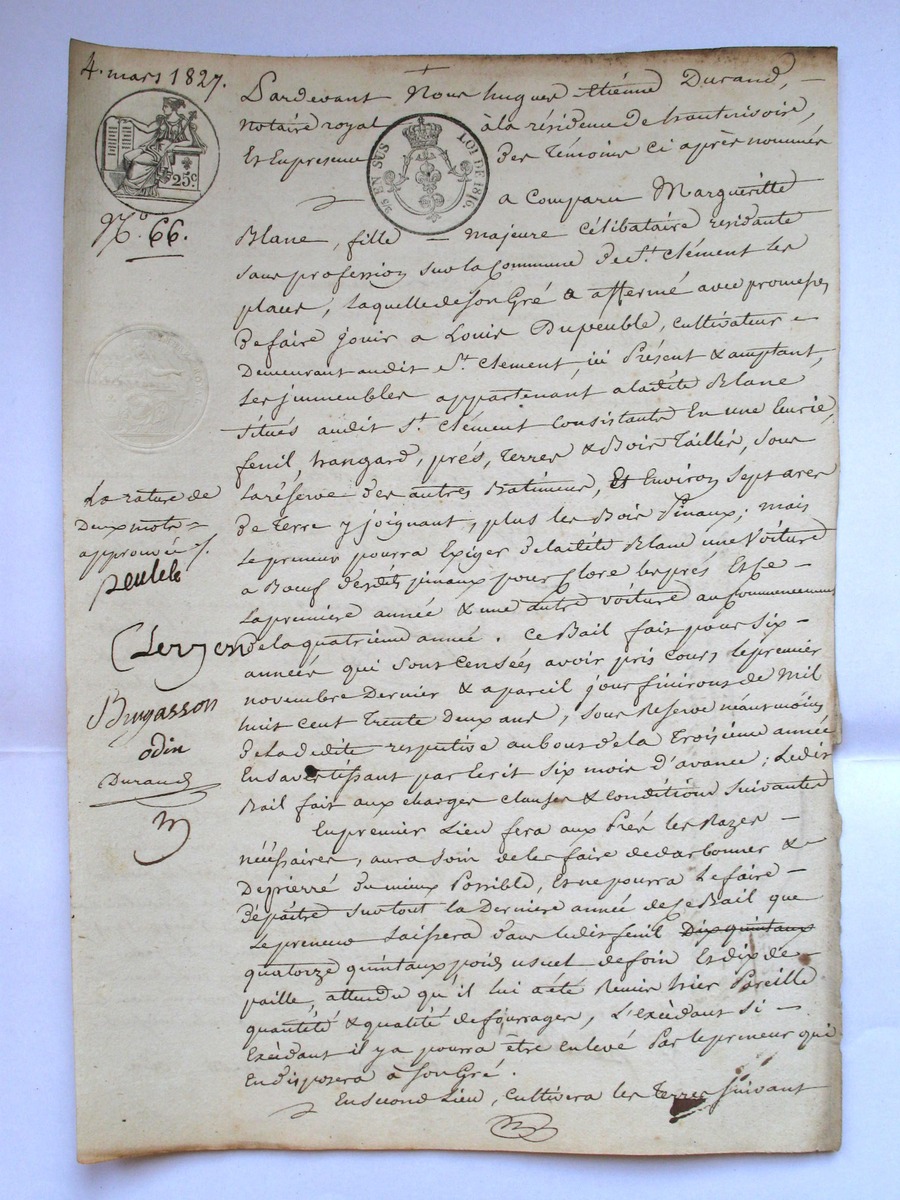 4. mars 1827.
Pardevant Nous hugues Étiénne Durand, —
notaire royal à la résidence de hauterivoire,
Et En presence des Témoins Ci après nommés
25 EN SUS
LOI DE 1816.
25 C
N.º 66.
a Comparu Margueritte
Blanc, fille — majeure Célibataire residante
sans profession sur la Commune de St. Clément les
places, laquelle de son Gré a affermé avec promesses
De faire jouir a Louis Dupeuble, cultivateur —
Demeurant audit St. Clement, ici Présent & acceptant,
Les jmmeubles appartenant a ladite Blanc
situés audit St. Clément Consistants En une Ecurie,
fenil, hangard, prés, Terres & Bois Taillés, sous
La réserve des autres Batimens, Et Environ sept ares
De Terre y joignant, plus les Bois Pinaux; mais
Le preneur pourra Exiger de ladite Blanc une Voiture
a Bœuf desdits pinaux pour Clore les prés Et Ce —
La première année & une autre voiture au Commencement
De la quatrième année. Ce Bail fait pour six —
années qui sont Censées avoir pris Cours le premier
novembre Dernier & a pareil jour finiront de Mil
huit Cent Trente deux ans, sous Reserve néantmoins
De la dedite respective au bout de la Troisiéme année
En s'avertissant par Ecrit six mois d'avance; Ledit
Bail fait aux charges clauses & conditions suivantes
La rature de
Deux mots
approuvée
Brugasson
odin
Durand
En premier Lieu fera aux Prés les Razes —
néssaires, aura soin de les faire dedarbonner &
Depierré du mieux Possible, Et ne pourra Le faire —
dépaître surtout la Derniere année de Ce Bail que
Le preneur Laissera dans ledit fenil Dix quintaux
quatorze quintaux poids usuel de foin Et dix de
paille, attendu qu'il lui a été Remis hier Pareille
quantité & qualité de fourrages, L'exédant si —
Exédant il y a pourra être enlevé Par le preneur qui
En disposera à son Gré.
En second Lieu, Cultivera les Terres suivant